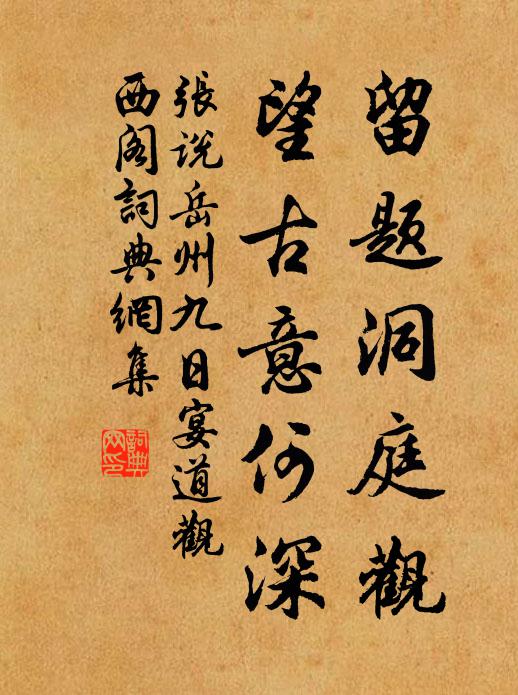 留题洞庭觀
望古意何深
張説岳州九日宴道觀
西阁詞典網集
詞典网印